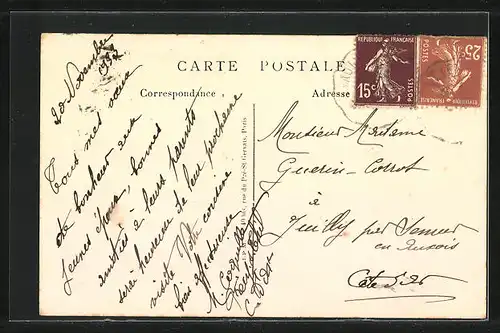 CARTE POSTALE
Correspondance
Adresse
REPUBLIQUE FRANÇAISE
15c POSTES
25c POSTES
REPUBLIQUE FRANÇAISE
20 Novembre
1932
Tous mes vœux
de bonheur aux
jeunes époux, bonnes
amitiés à leurs parents
serai heureuse de leur prochaine
visite Votre cousine
bien affectueuse
rue du Pré-St-Gervais, Paris
Monsieur Madame
Guerin-Corrot
à
Juilly par Semur
en Auxois
Côte d'Or